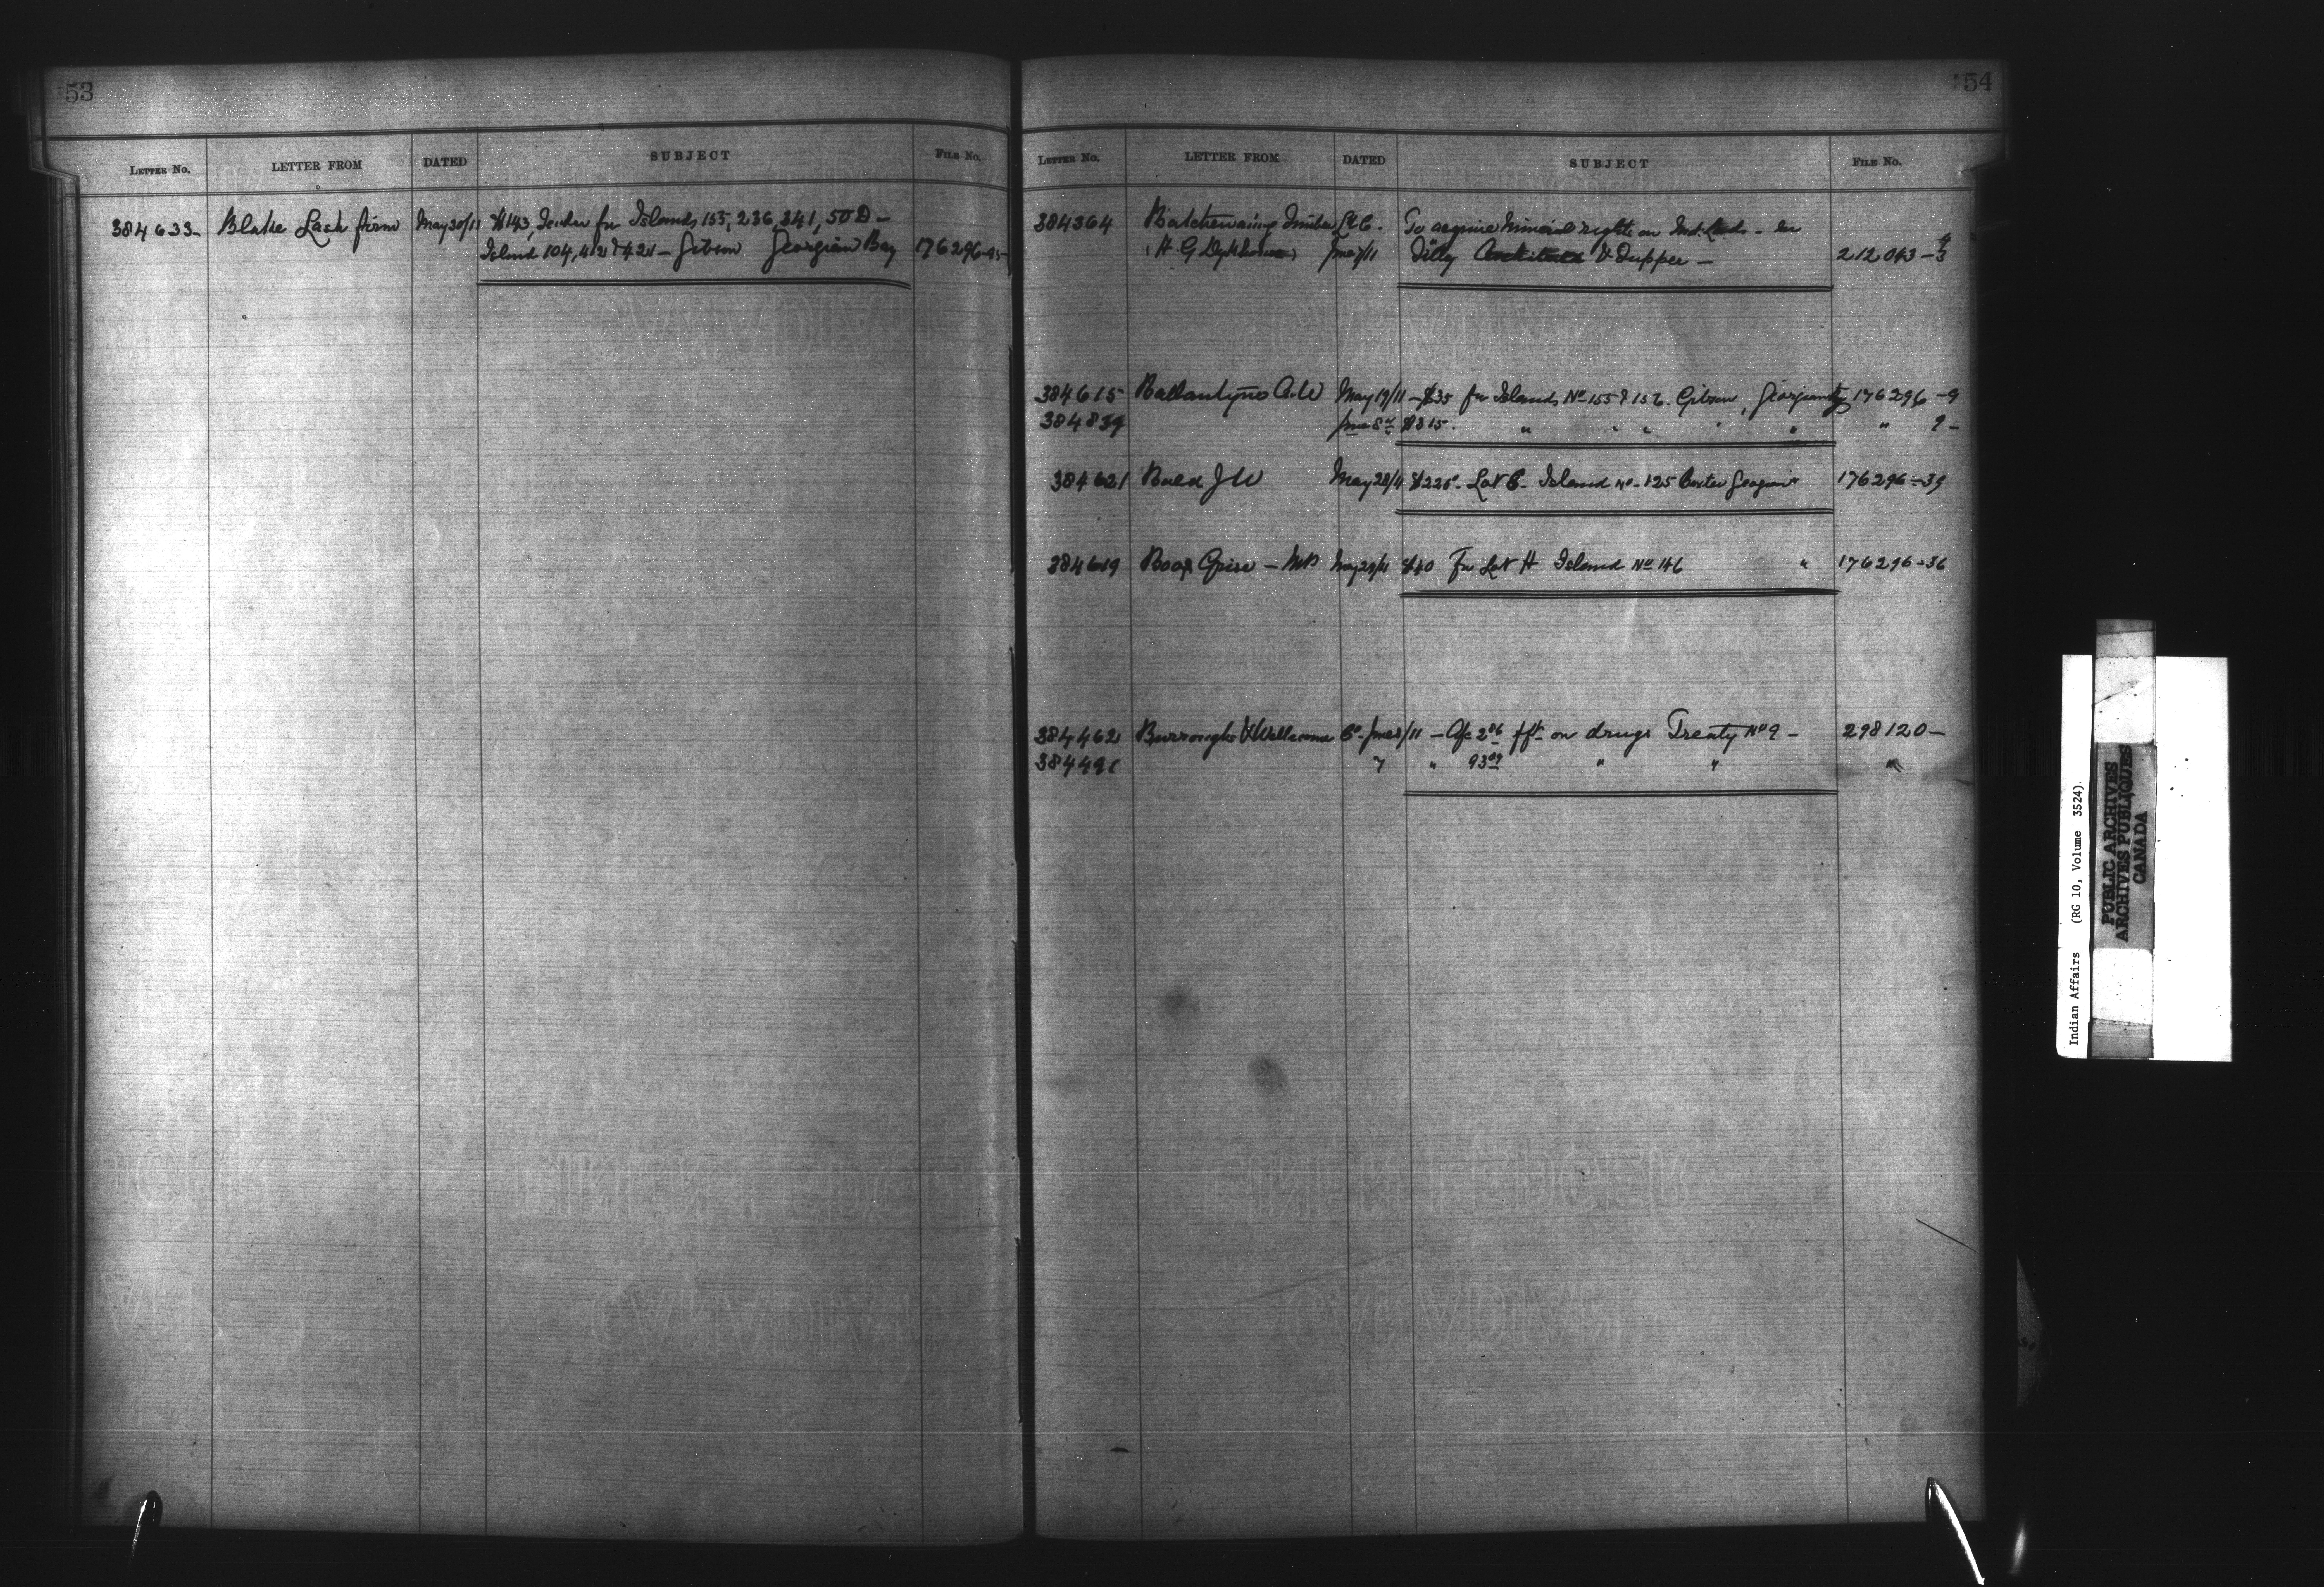 53
LETTER NO. LETTER FROM DATED SUBJECT FILE NO.
384633 Blake Lash firm May 30/11 $143, Tender for Islands 155, 236, 341, 50D —
Island 104, 412 & 421 — Gibson Georgian Bay 176296-
54
LETTER NO. LETTER FROM DATED SUBJECT FILE NO.
384364 Batchewaing Timber To acquire Mineral rights on Ind. Lands - in
(H. G. June /11 Tilly & Tupper — 212043-3
384615 Ballantyne May 19/11 - $35 for Islands No 155 & 156. Gibson, Georgian 176296-9
384839 June 8 $315. " " " 9-
384621 J W May 28/11 $225 - Lot Island No - 125 Baxter Georgian 176296-39
384619 May 29/11 $40 For Lot H Island No 146 " 176296-36
384462 Burroughs & Wellcome Co. June /11 - a/c on drugs Treaty No 9 - 298120-
384491 7 " 93 " " "
Indian Affairs (RG 10, Volume 3524)
PUBLIC ARCHIVES
ARCHIVES PUBLIQUES
CANADA